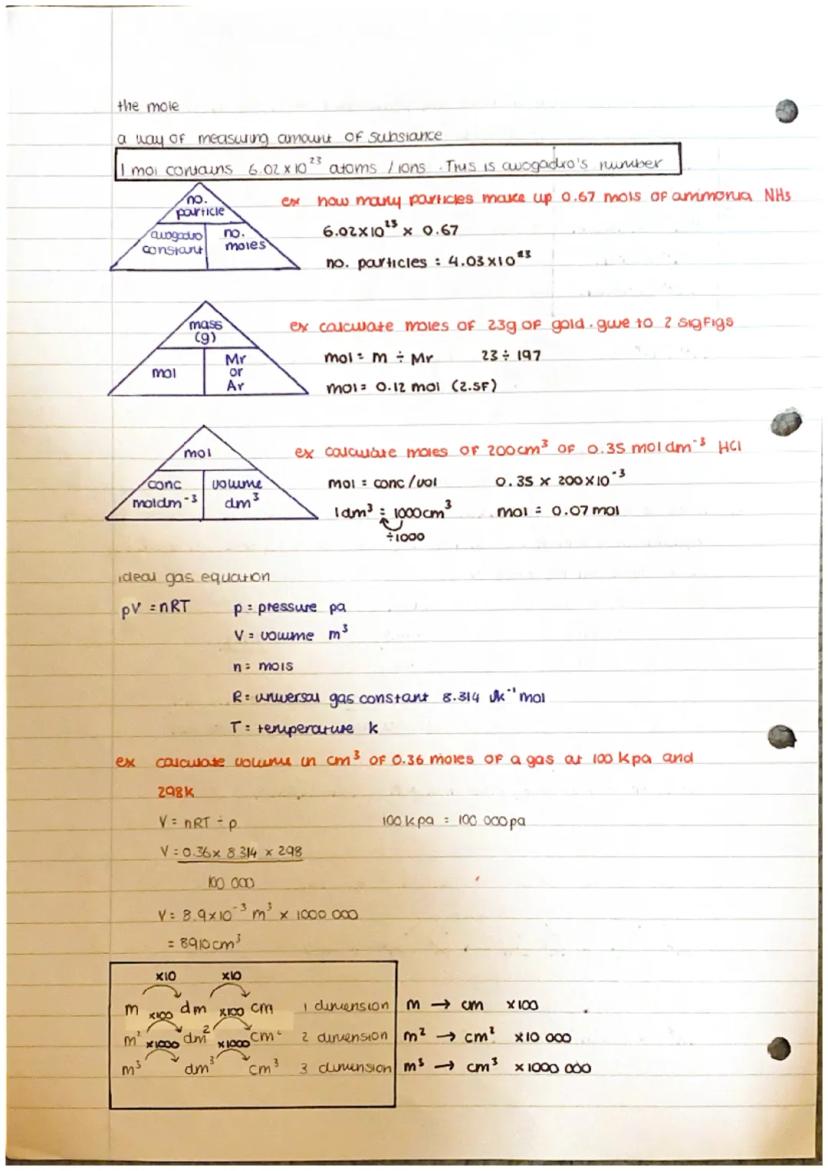 the mole
a way of measuring amount of substance
1 mol contains 6.02 x 10²³ atoms / ions. This is avogadro's number
no. particle
avogadro constant
no. moles
ex how many particles make up 0.67 mols of ammonia NH₃
6.02x10²³ x 0.67
no. particles = 4.03x10²³
mass (g)
mol
Mr or Ar
ex calculate moles of 23g of gold. give to 2 sigfigs
mol = m ÷ Mr 23 ÷ 197
mol = 0.12 mol (2.SF)
mol
conc moldm⁻³
volume dm³
ex calculate moles of 200cm³ of 0.35 mol dm⁻³ HCl
mol = conc / vol 0.35 x 200x10⁻³
1dm³ = 1000cm³ mol = 0.07 mol
÷1000
ideal gas equation
pV = nRT p = pressure pa
V = volume m³
n = mols
R = universal gas constant 8.314 Jk⁻¹mol
T = temperature k
ex calculate volume in cm³ of 0.36 moles of a gas at 100 kpa and
298k
V = nRT ÷ p 100 kpa = 100 000 pa
V = 0.36 x 8.314 x 298
100 000
V = 8.9x10⁻³ m³ x 1000 000
= 8910 cm³
x10 x10
m dm cm 1 dimension m → cm x100
x100 x100
m² dm² cm² 2 dimension m² → cm² x10 000
x1000 x1000
m³ dm³ cm³ 3 dimension m³ → cm³ x1000 000